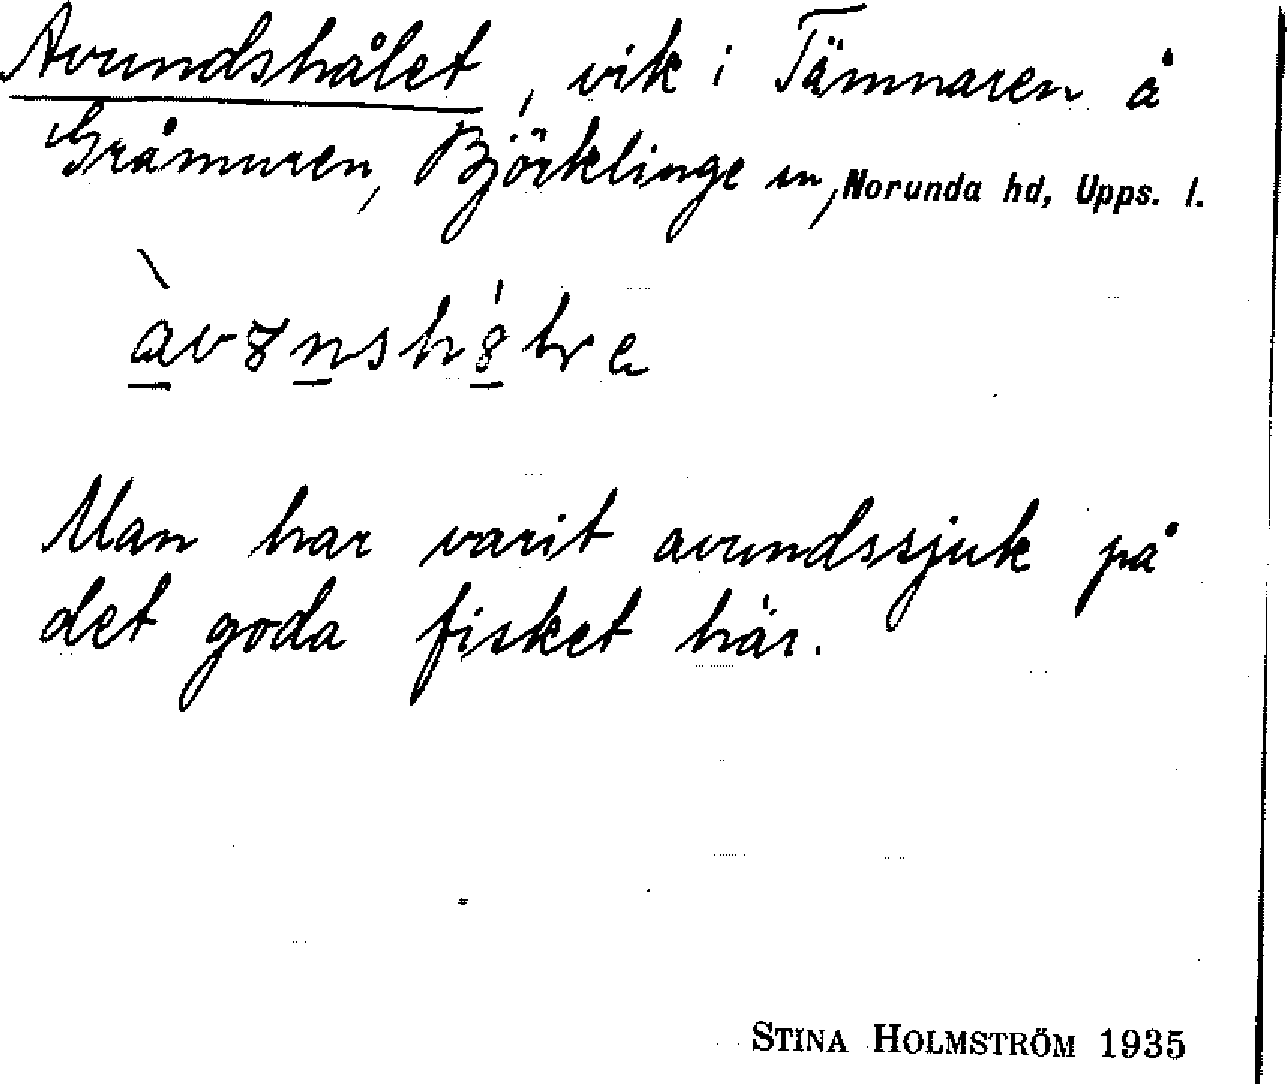 Avundshålet, vik i Tämnaren å
Gråmuren, Björklinge sn, Norunda hd, Upps. l.
Man har varit avundssjuk på
det goda fisket här.
STINA HOLMSTRÖM 1935